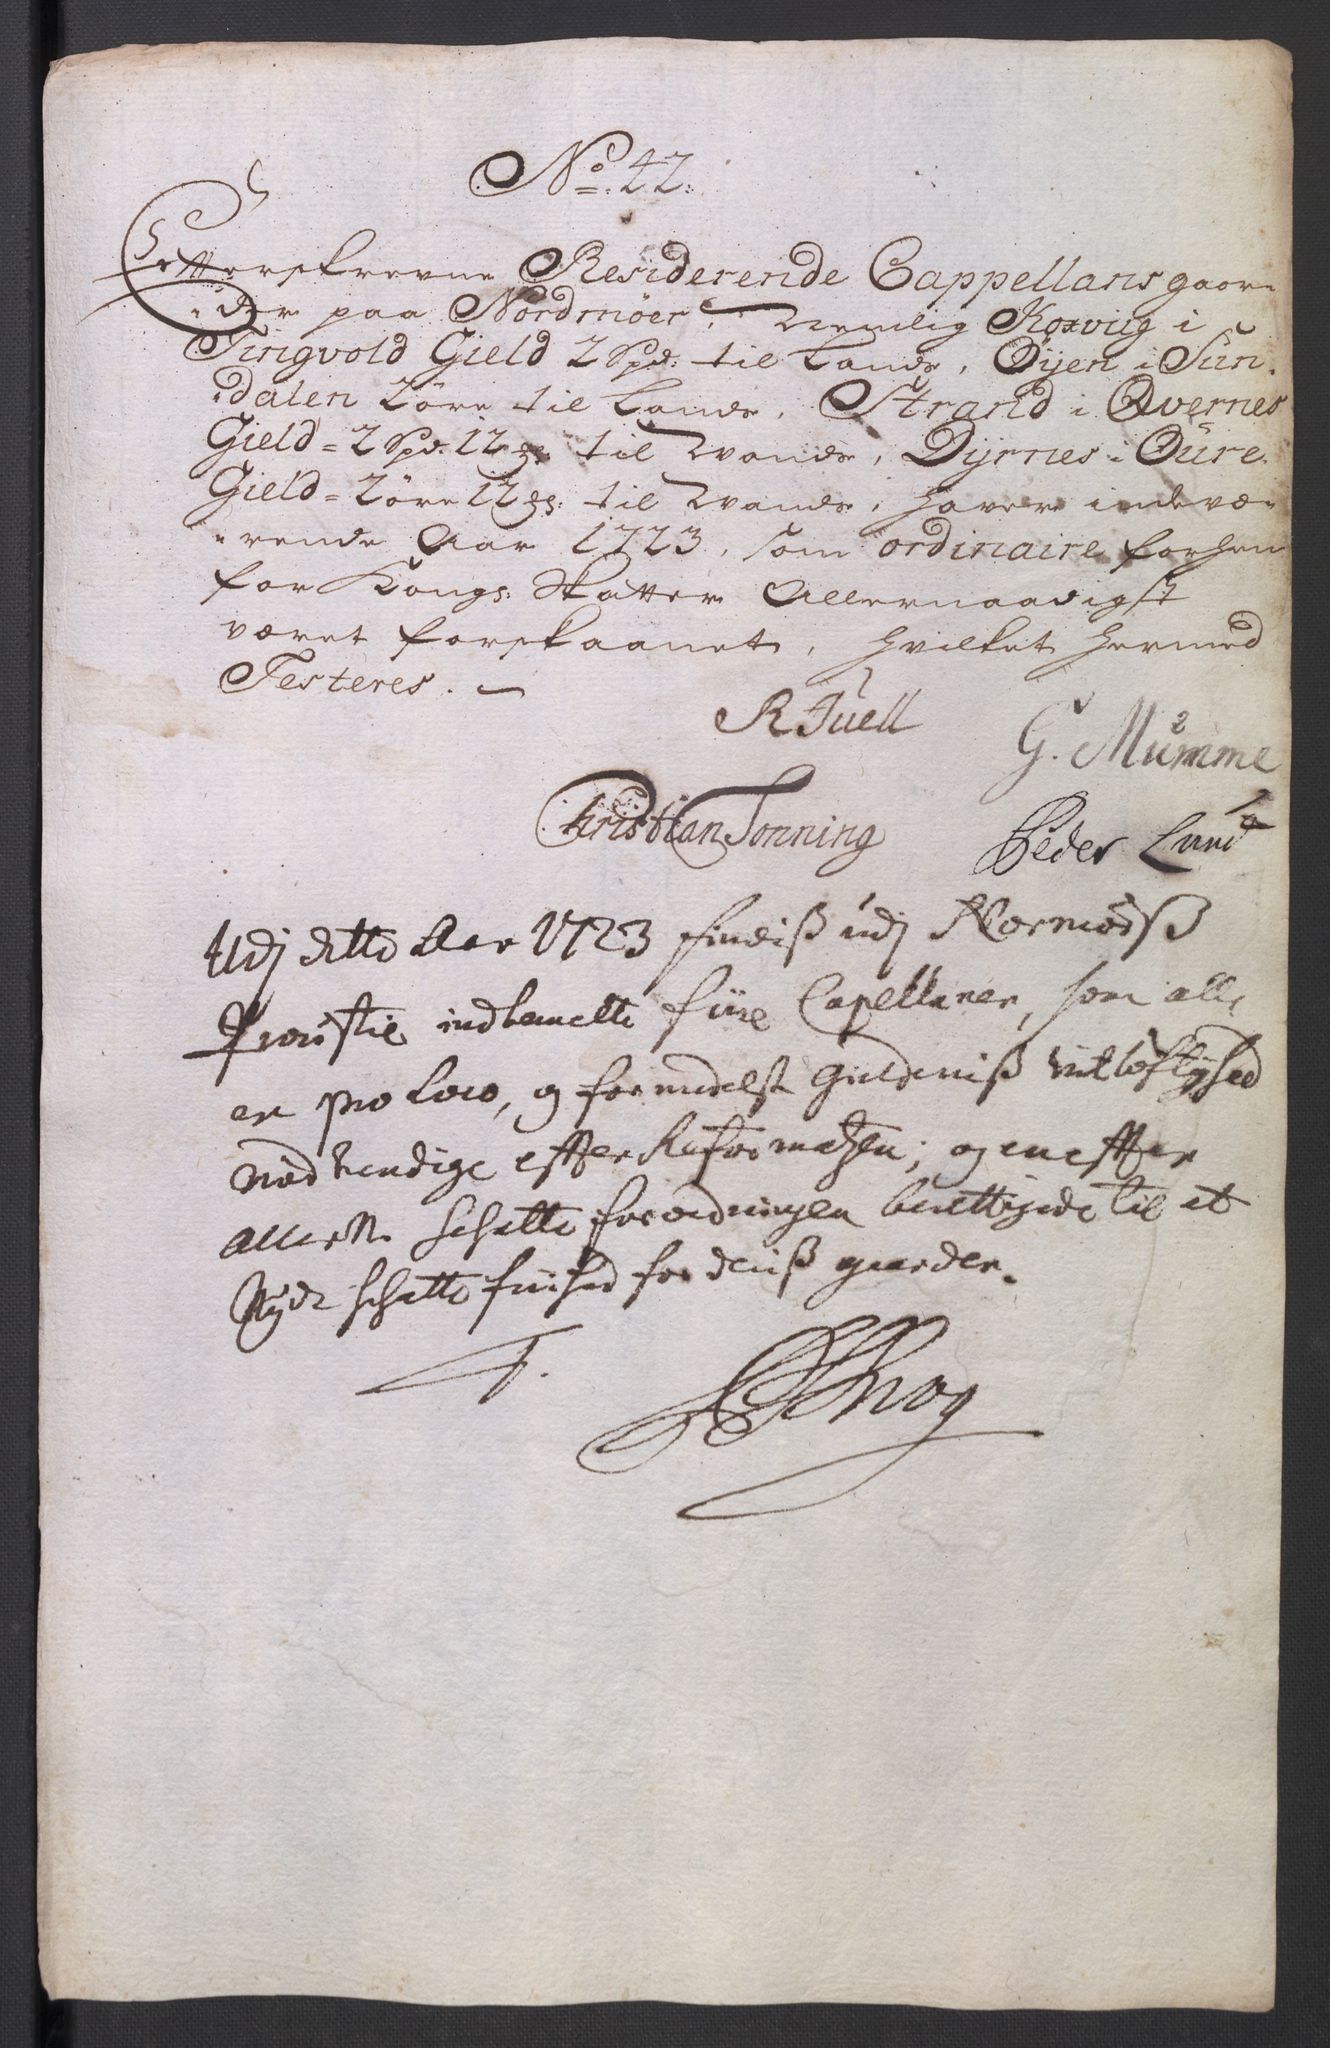 No: 42.
Efterskrevne Residerende Cappellans gaar-
der paa Nordmøer, Nemlig Koxvig i
Tingvold Gield 2 Spd: til Lands, Øÿen i Sun-
dalen 2 øre til Lands, Strand i Qvernes
Gield = 2 Spd: 12 til Wands, Dÿrnes i Øure
Gield = 2 øre 12 til Wands, haver indevæ-
rende Aar 1723, som ordinaire forhen
for Kongs: Skatter Allernaadigst
været forskaanet, hvilket hermed
Testeres. -
R Juell G. Mumme
Christian Tonning Peder Lund
Udj ditto Aar 1723 findiß udj Normørß
Provstie indbemelte fiire Capellaner, som alle
er pro loco, og formedelst Gieldeniß vitløftighed
nødvendige efter Reformatzen; og en efter
allern. Schatte forordningen berettigede til at
Nyde Schatte friihed for deriß gaarder.
T. Schrog